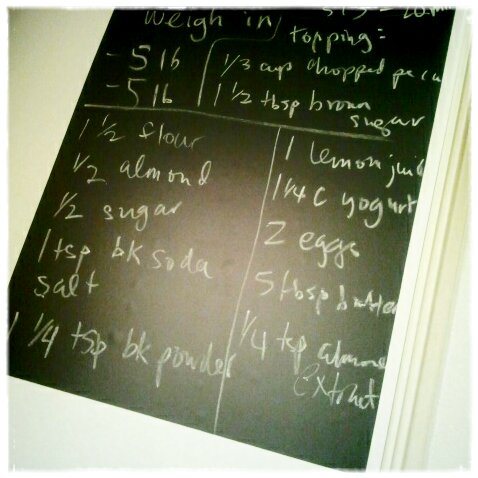 weigh in
-5 lb
-5 lb
topping:
1/3 cup chopped peca
1 1/2 tbsp brown
sugar
1 1/2 flour
1/2 almond
1/2 sugar
1 tsp bk soda
salt
1 1/4 tsp bk powder
1 lemon juic
1 1/4 c yogurt
2 eggs
5 tbsp butter
1/4 tsp almond
extract